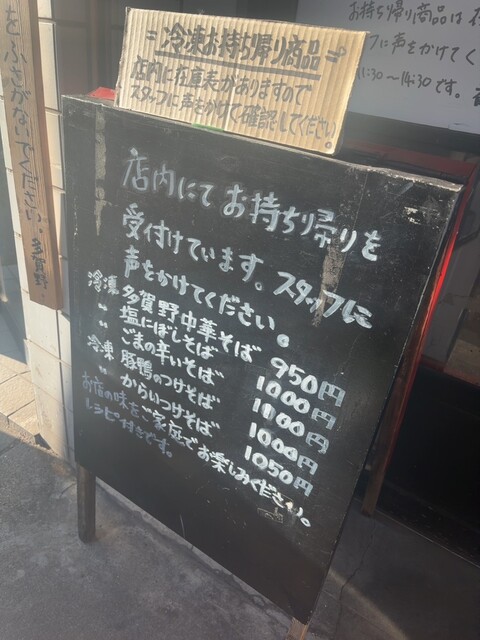 =冷凍お持ち帰り商品=
店内に在庫表がありますので
スタッフに声をかけて確認してください。
お持ち帰り商品は
フに声をかけてく
11:30〜14:30です。
をふさがないでください。多賀野.
店内にてお持ち帰りを
受付けています。スタッフに
声をかけてください。
冷凍 多賀野中華そば 950円
〃 塩にぼしそば 1000円
〃 ごまの辛いそば 1100円
冷凍 豚鴨のつけそば 1000円
〃 からいつけそば 1050円
お店の味をご家庭でお楽しみください。
レシピ付きです。